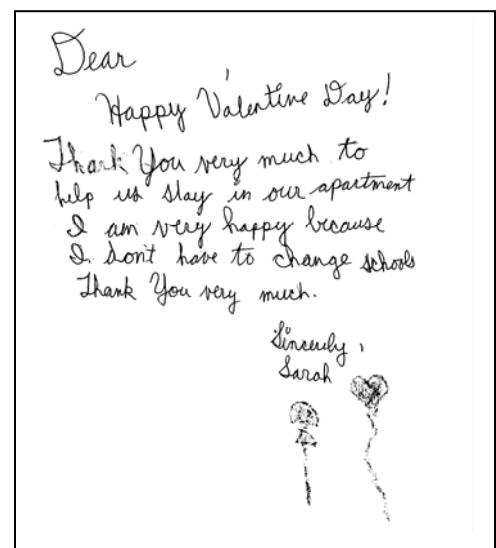 Dear
Happy Valentine Day!
Thank You very much to
help us stay in our apartment
I am very happy because
I don't have to change schools
Thank You very much.
Sincerely,
Sarah